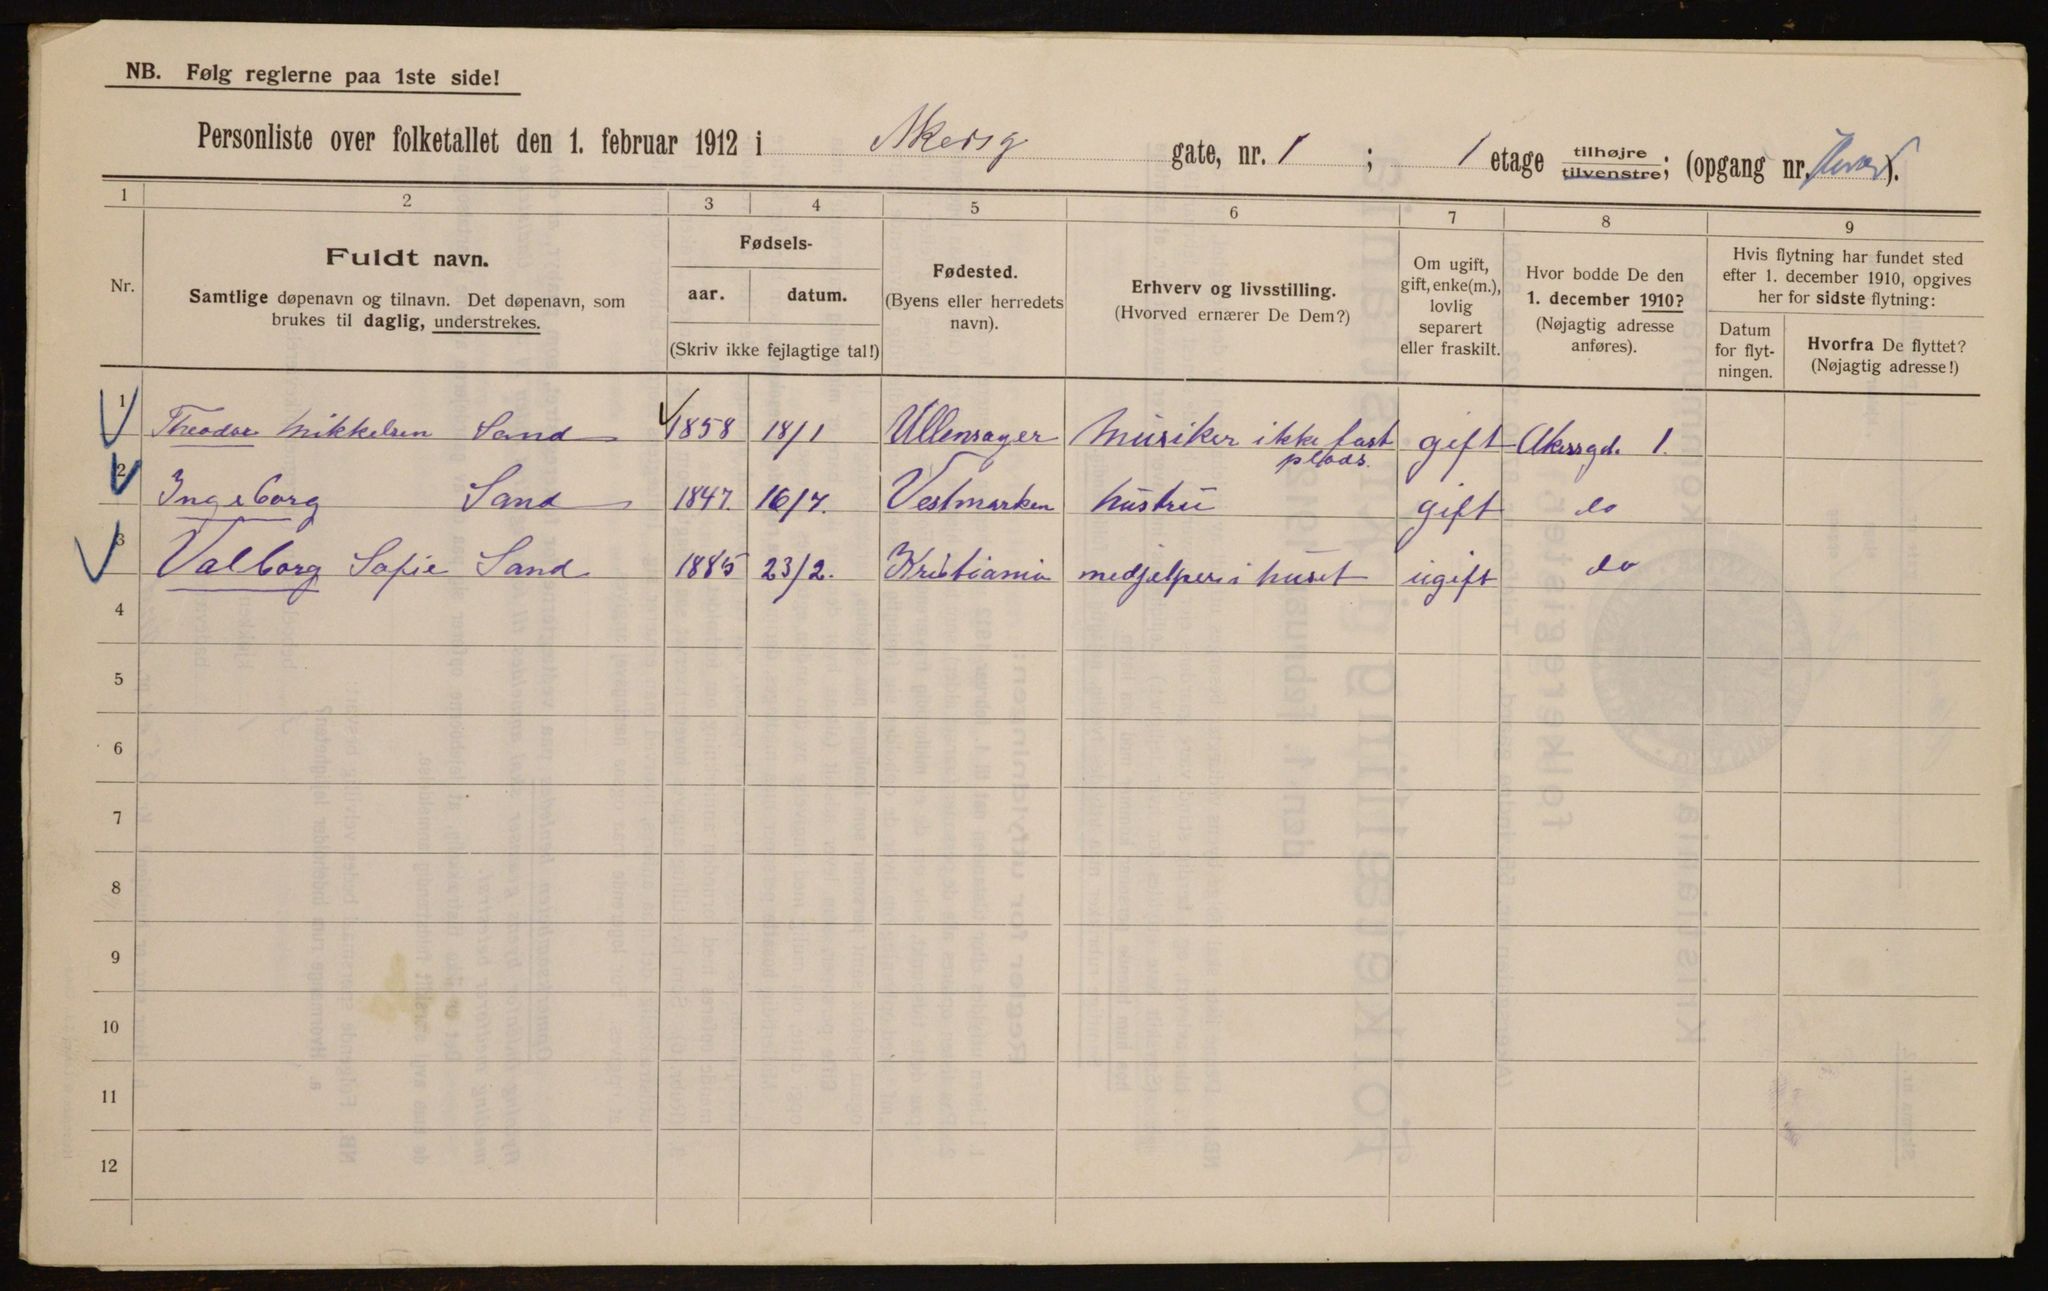 NB. Følg reglerne paa 1ste side!
Personliste over folketallet den 1. februar 1912 i Akersg gate, nr. 1 ; 1 etage tilhøjre tilvenstre; (opgang nr. ).
1 2 3 4 5 6 7 8 9
Nr.
Fuldt navn.
Samtlige døpenavn og tilnavn. Det døpenavn, som
brukes til daglig, understrekes.
Fødsels-
aar. datum.
(Skriv ikke fejlagtige tal!)
Fødested.
(Byens eller herredets
navn).
Erhverv og livsstilling.
(Hvorved ernærer De Dem?)
Om ugift,
gift, enke(m.),
lovlig
separert
eller fraskilt.
Hvor bodde De den
1. december 1910?
(Nøjagtig adresse
anføres).
Hvis flytning har fundet sted
efter 1. december 1910, opgives
her for sidste flytning:
Datum
for flyt-
ningen.
Hvorfra De flyttet?
(Nøjagtig adresse!)
1 Theodor Mikkelsen Sand 1858 18/1 Ullensager Musiker ikke fast plads. gift Akersgd. 1.
2 Ingeborg Sand 1847. 16/7. Vestmarken hustru gift do
3 Valborg Sofie Sand 1885 23/2. Kristiania medhjelper i huset ugift do
4
5
6
7
8
9
10
11
12